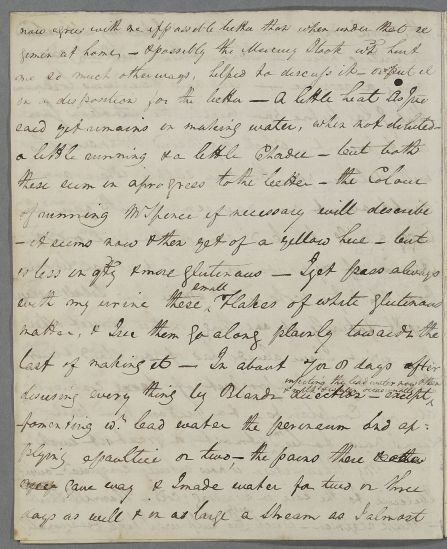 now agrees with me if possible better than when under that re
gimen at home, - & possibly the Mercury I took wh. hurt
me so much otherways, helped to discuss it - or put it
in a disposition for the better - A little heat as I've
said yet remains in making water, when not diluted -
a little running & a little Chadee - but both
these seem in a progress to the better - the Colour
of running Mr Spence if necessary will describe
- it seems now & then yet of a yellow hue - but
is less in qty & more glutinous - I yet pass always
with my urine these small Flakes of white glutinous
matter, & I see them go along plainly towards the
last of making it - In about 7 or 8 days after
disusing every thing by Blands direction except
injecting the lead water now & then
fomenting wt. lead water the perineum and ap-
plying a poultice or two, - the pains there
gave way & I made water for two or three
days as well & in as large a Stream as I almost